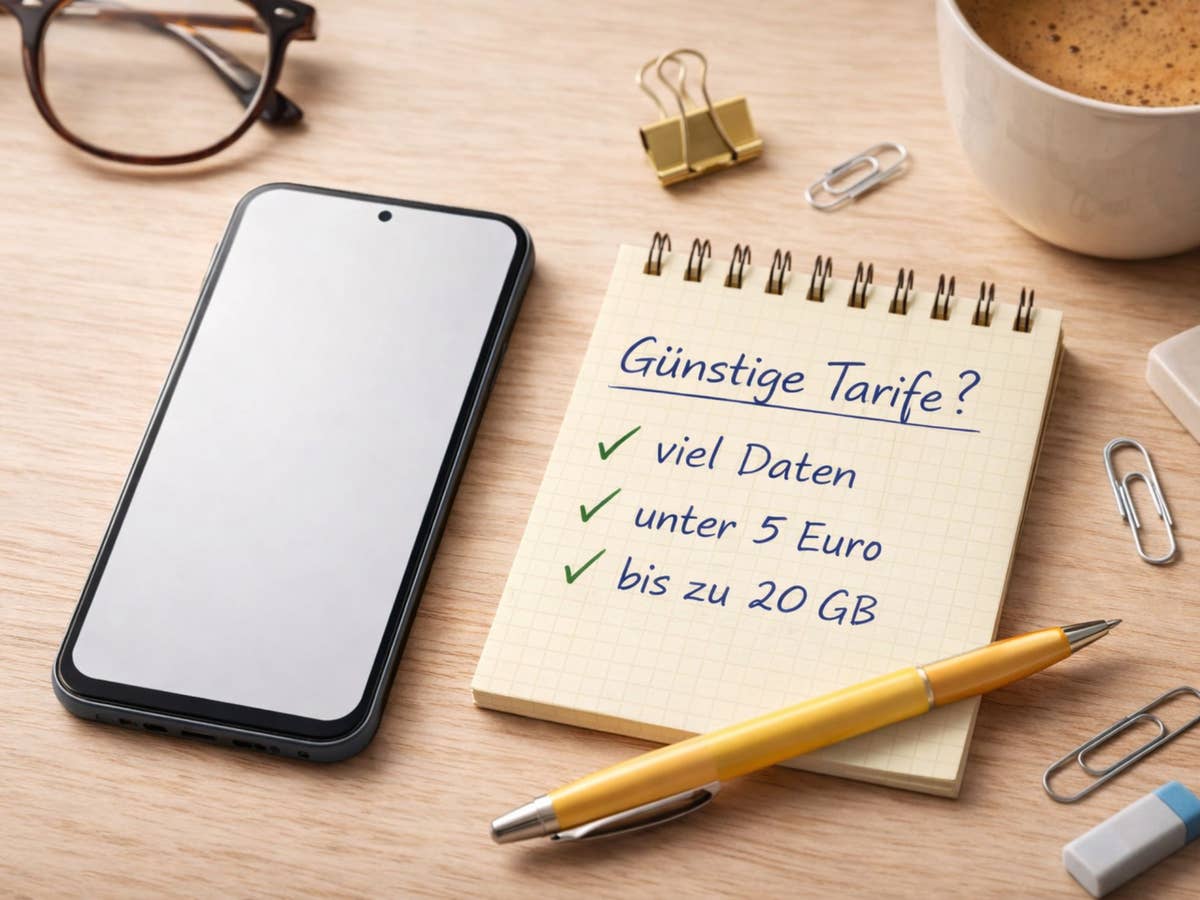 Günstige Tarife?
✓ viel Daten
✓ unter 5 Euro
✓ bis zu 20 GB